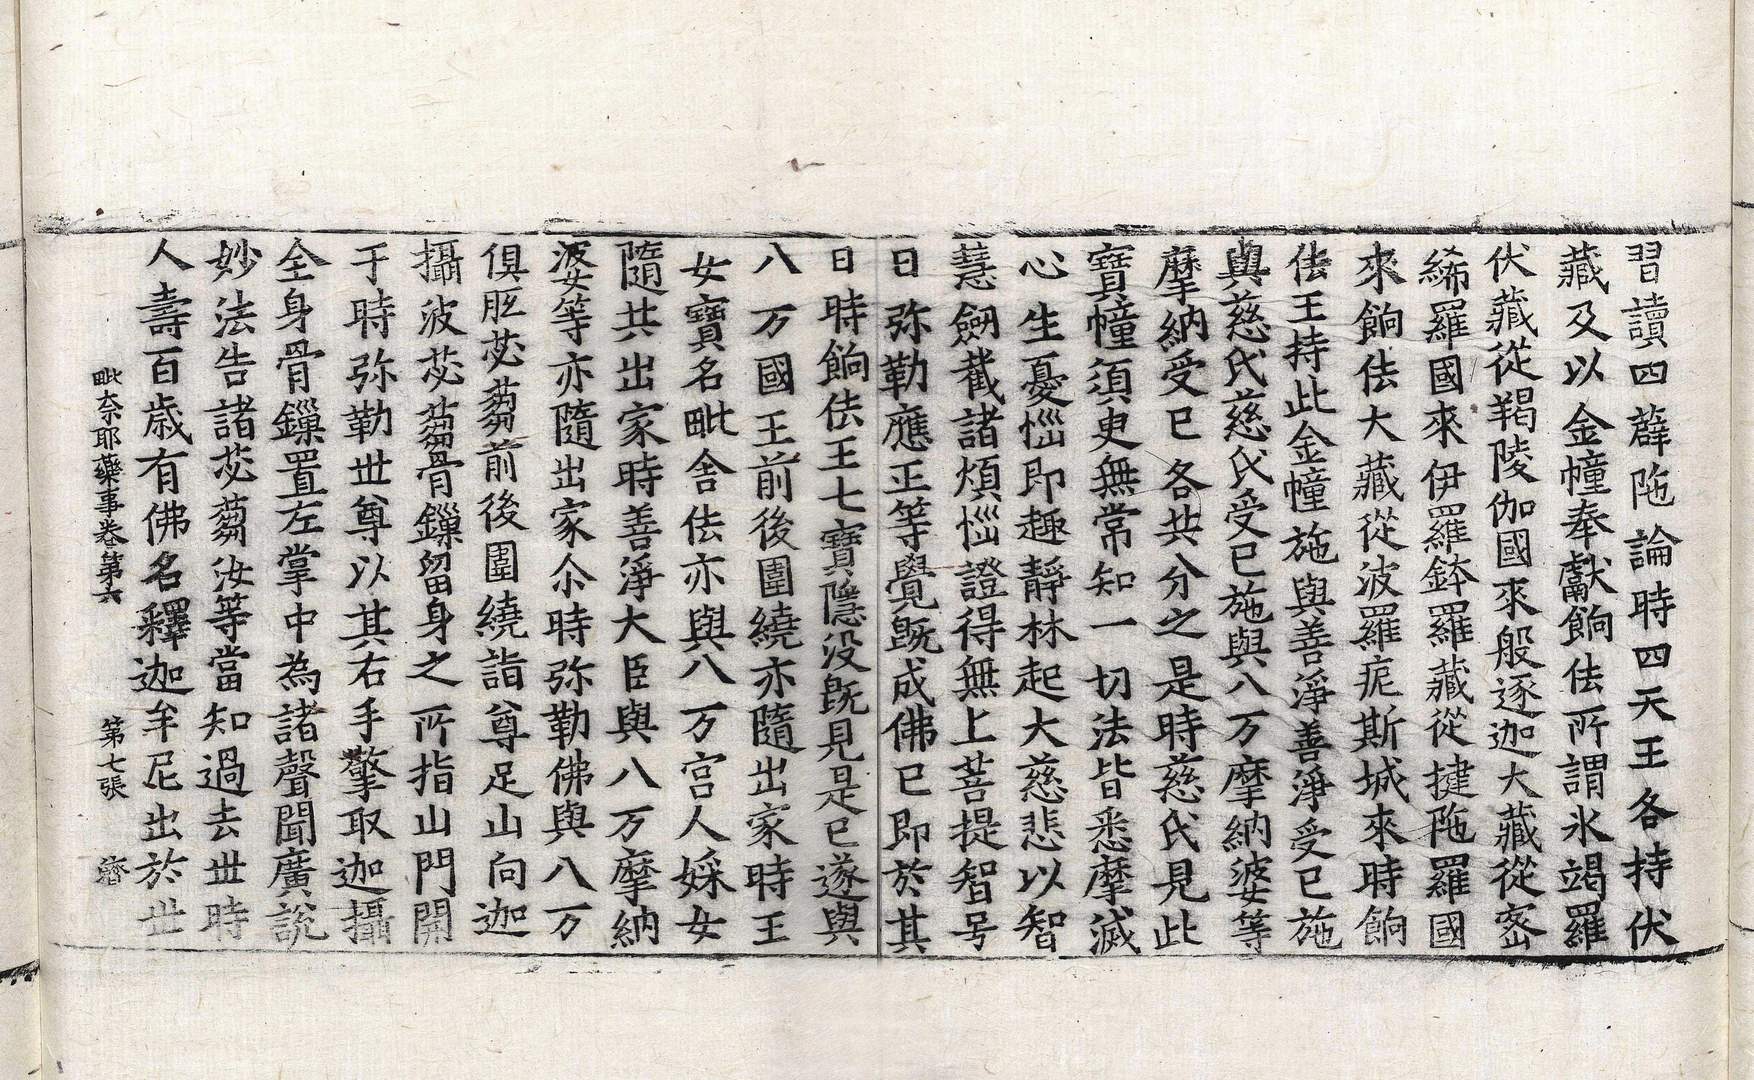 習讀四薜陁論時四天王各持伏
藏及以金幢奉獻餉佉所謂氷竭羅
伏藏從羯陵伽國來般逐迦大藏從宻
絺羅國來伊羅鉢羅藏從揵陁羅國
來餉佉大藏從波羅痆斯城來時餉
佉王持此金幢施與善淨善淨受已施
與慈氏慈氏受已施與八万摩納婆等
摩納受已各共分之是時慈氏見此
寶幢須臾無常知一切法皆悉摩滅
心生憂惱即趣靜林起大慈悲以智
慧劔截諸煩惱證得無上菩提智号
曰弥勒應正等覺旣成佛已即於其
日時餉佉王七寶隱没旣見是已遂與
八万國王前後圍繞亦隨出家時王
女寶名毗舍佉亦與八万宮人婇女
隨共出家時善淨大臣與八万摩納
婆等亦隨出家尒時弥勒佛與八万
俱胝苾蒭前後圍繞詣尊足山向迦
攝波苾蒭骨鏁留身之所指山門開
于時弥勒世尊以其右手擎取迦攝
全身骨鏁置左掌中為諸聲聞廣說
妙法告諸苾蒭汝等當知過去世時
人壽百歲有佛名釋迦牟尼出於世
毗奈耶藥事卷第六 第七張